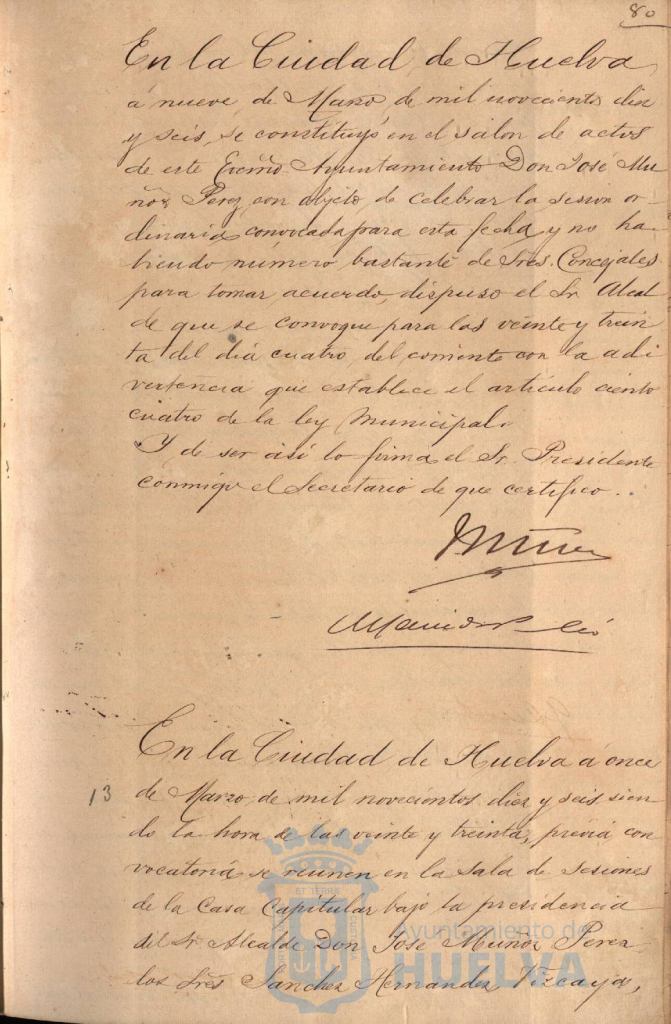 80
En la Ciudad de Huelva
á nueve de Marzo de mil novecientos diez
y seis, se constituyó en el salon de actos
de este Excmo Ayuntamiento Don José Mu
ñoz Perez, con objeto de celebrar la sesion or
dinaria convocada para esta fecha y no ha
biendo número bastante de Sres. Concejales
para tomar acuerdo, dispuso el Sr. Alcal
de que se convoque para las veinte y trein
ta del dia cuatro del corriente con la adi
vertencia que establece el artículo ciento
cuatro de la ley Municipal.
Y de ser asi lo firma el Sr. Presidente
conmigo el Secretario de que certifico.
En la Ciudad de Huelva á once
13
de Marzo de mil novecientos diez y seis sien
do la hora de las veinte y treinta, previa con
vocatoria se reunen en la sala de sesiones
de la Casa Capitular bajo la presidencia
del Sr. Alcalde Don José Muñoz Perez
los Sres Sanchez Hernandez Vizcaya,
Ayuntamiento de
HUELVA